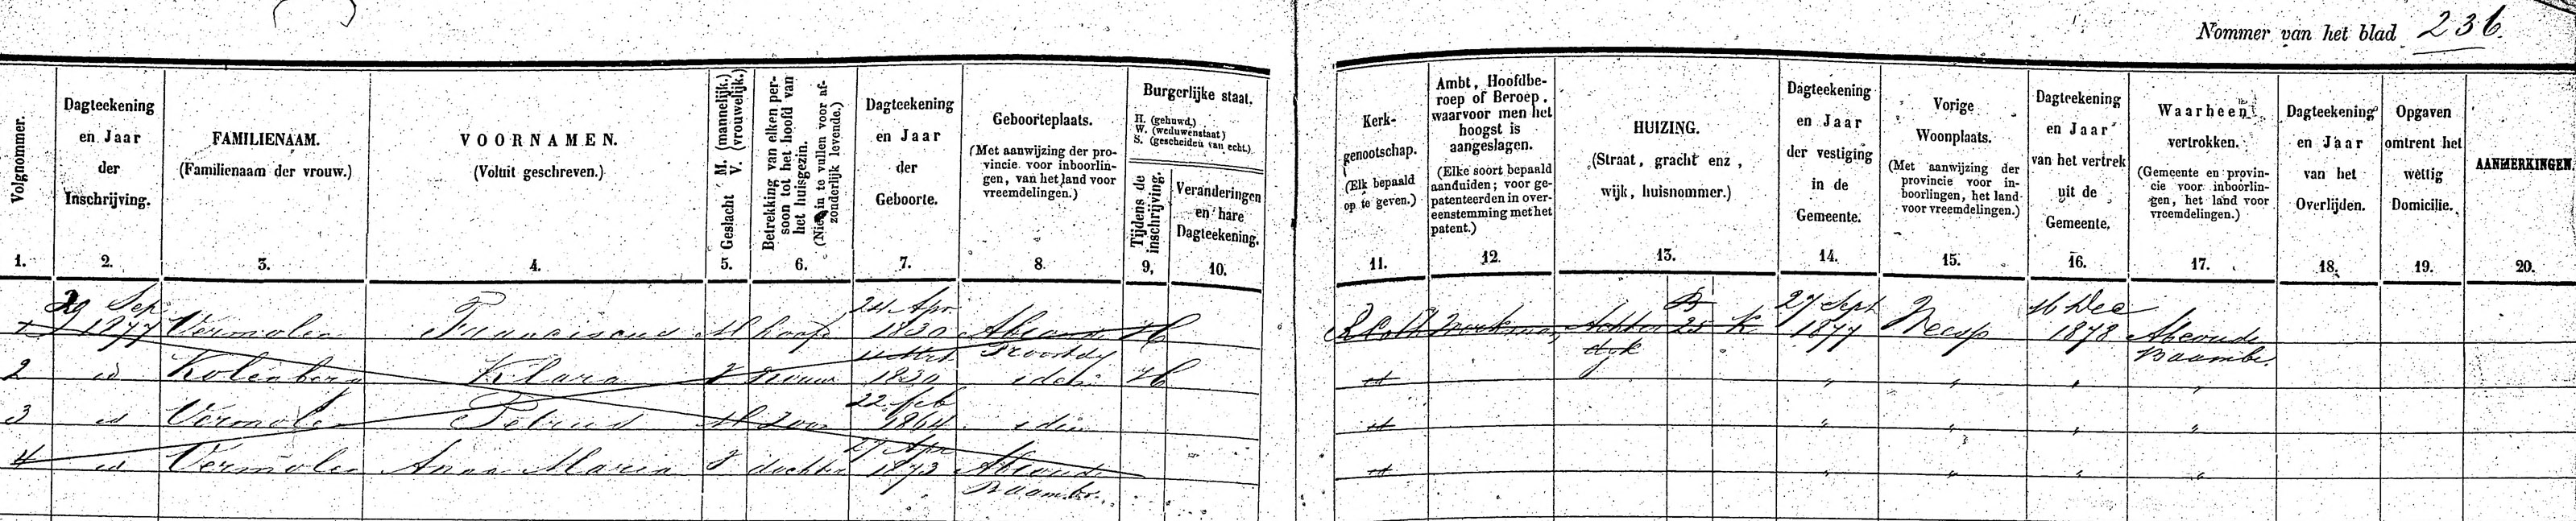 Nommer van het blad 236.
Volgnommer.
1.
Dagteekening
en Jaar
der
Inschrijving.
2.
FAMILIENAAM.
(Familienaam der vrouw.)
3.
VOORNAMEN.
(Voluit geschreven.)
4.
Geslacht M. (mannelijk.)
V. (vrouwelijk.)
5.
Betrekking van elken per-
soon tot het hoofd van
het huisgezin.
(Niet in te vullen voor af-
zonderlijk levende.)
6.
Dagteekening
en Jaar
der
Geboorte.
7.
Geboorteplaats.
(Met aanwijzing der pro-
vincie voor inboorlin-
gen, van het land voor
vreemdelingen.)
8.
Burgerlijke staat.
H. (gehuwd.)
W. (weduwenstaat)
S. (gescheiden van echt.)
Tijdens de
inschrijving.
9.
Veranderingen
en hare
Dagteekening.
10.
Kerk-
genootschap.
(Elk bepaald
op te geven.)
11.
Ambt, Hoofdbe-
roep of Beroep,
waarvoor men het
hoogst is
aangeslagen.
(Elke soort bepaald
aanduiden; voor ge-
patenteerden in over-
eenstemming met het
patent.)
12.
HUIZING.
(Straat, gracht enz,
wijk, huisnommer.)
13.
Dagteekening
en Jaar
der vestiging
in de
Gemeente.
14.
Vorige
Woonplaats.
(Met aanwijzing der
provincie voor in-
boorlingen, het land
voor vreemdelingen.)
15.
Dagteekening
en Jaar
van het vertrek
uit de
Gemeente.
16.
Waarheen
vertrokken.
(Gemeente en provin-
cie voor inboorlin-
gen, het land voor
vreemdelingen.)
17.
Dagteekening
en Jaar
van het
Overlijden.
18.
Opgaven
omtrent het
wettig
Domicilie.
19.
AANMERKINGEN.
20.
29 Sep 24 Apr B 27 Sept 16 Dec
1 1877 Vermolen Franciscus M hoofd 1830 H Achter 25 1877 1878 Abcoude
Proostdy dyk Baambr.
2 id Kolenberg Klara V vrouw 1830 idem H id " " " "
22 feb
3 id Vermolen Petrus M zoon 1864 idem id " " " "
27 Apr
4 id Vermolen Anna Maria V dochter 1873 Abcoude id " " " "
Baambr.